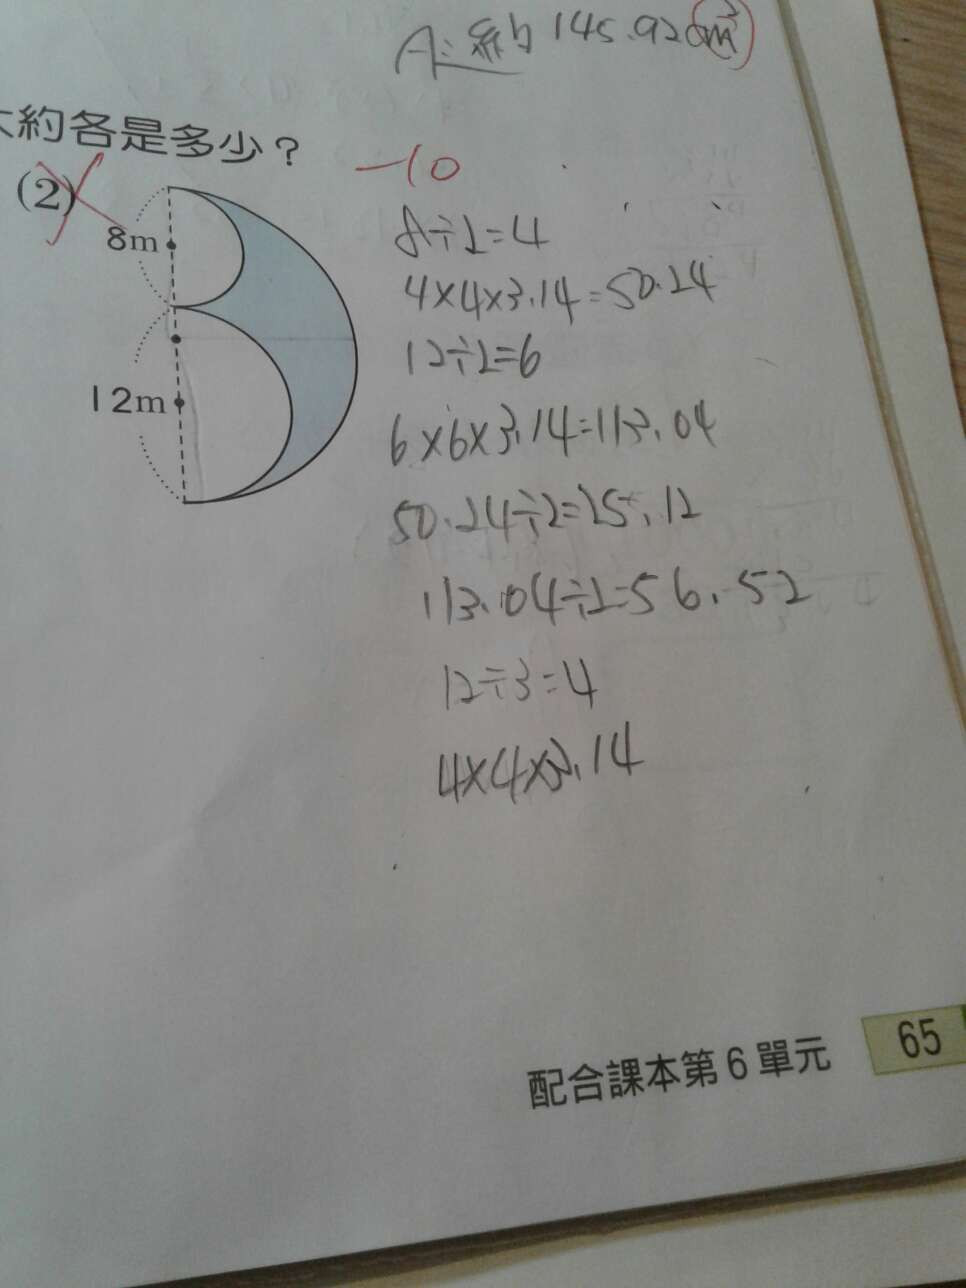 A:約145.92cm²
大約各是多少？
-10
(2)
8m
12m
8÷2=4
4×4×3.14=50.24
12÷2=6
6×6×3.14=113.04
50.24÷2=25.12
113.04÷2=56.52
12÷3=4
4×4×3.14
配合課本第6單元
65